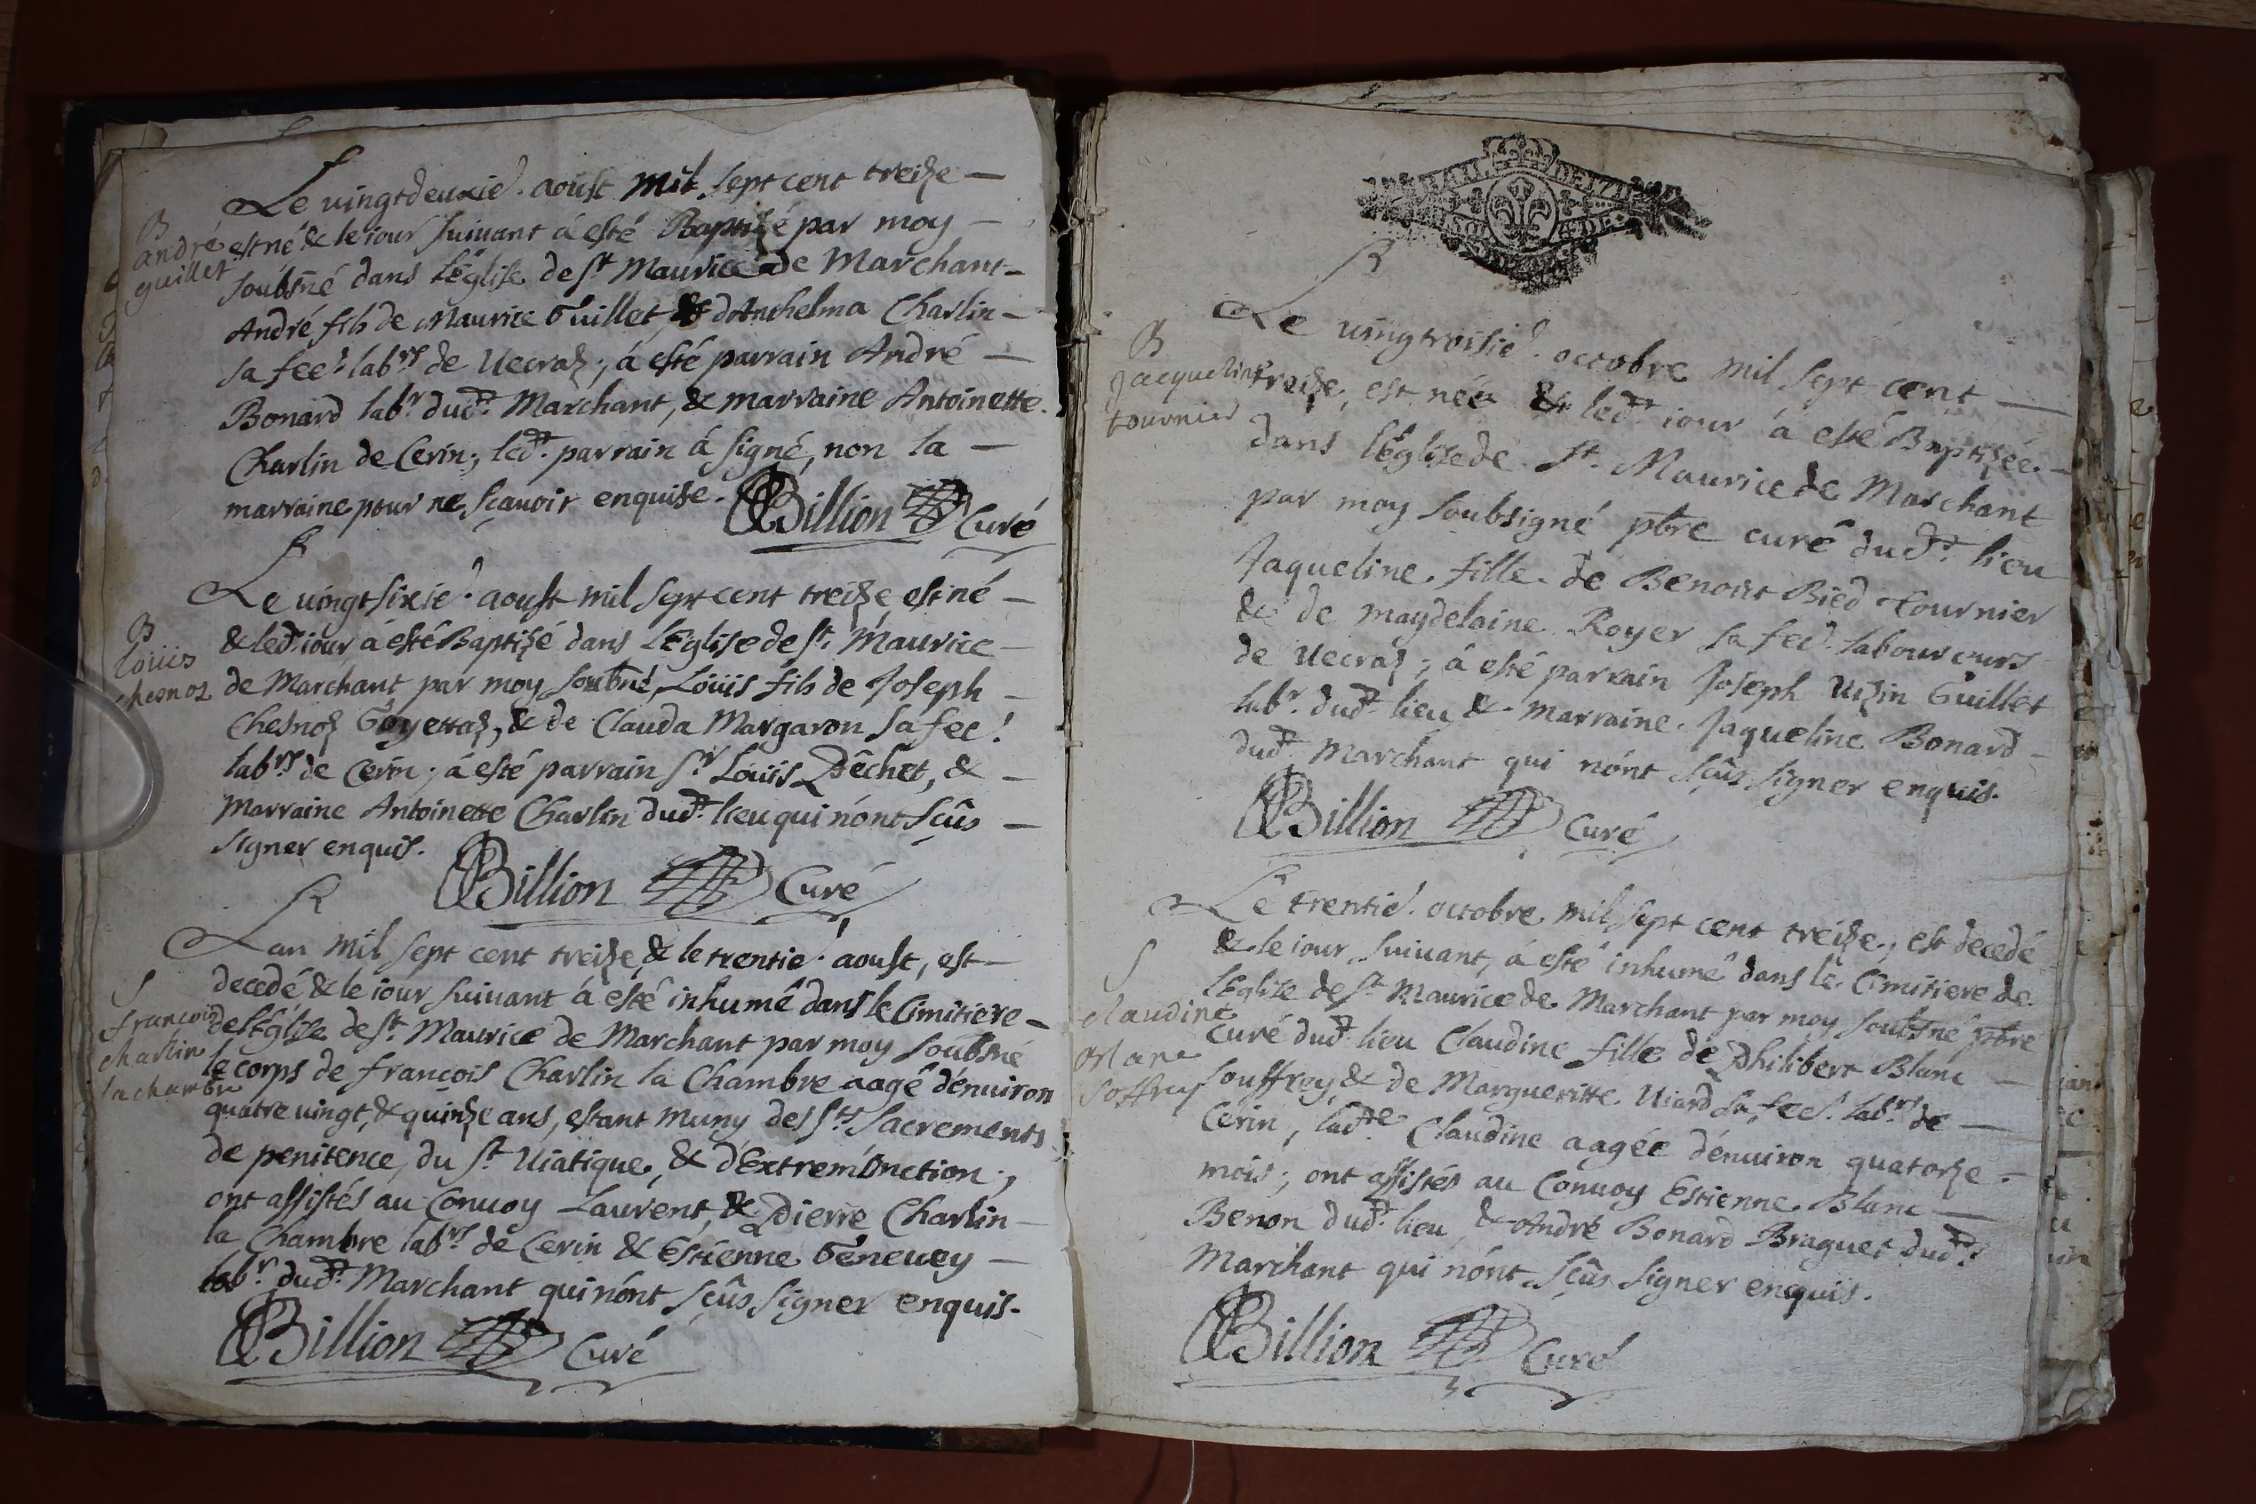 Le vingtdeuxie. aoust mil sept cent treize
B
andré
guillet
est né & le iour suiuant á esté Baptizé par moy
soubsné dans l'Église de st. Maurice de Marchant
André fils de Maurice Guillet & d'Anthelma Charlin
sa fee. labrs. de Uecraz; á esté parrain André
Bonard labr. dudt. Marchant, & marraine Antoinette
Charlin de Cerin; ledt. parrain á signé, non la
marraine pour ne sçauoir enquise. Billion Curé
Le uingt sixie. aoust mil sept cent treize est né
B
loüis
chesnoz
& ledt. iour á esté Baptizé dans l'Église de st. Maurice
de Marchant par moy soubné, Loüis fils de Joseph
Chesnoz Goyettaz, & de Clauda Margaron sa fee.
labrs. de Cerin; á esté parrain sr. Loüis Dêchet, &
Marraine Antoinette Charlin dudt. lieu qui n'ont sçûs
signer enquis. Billion Curé
Lan mil sept cent treize & le trentie. aoust, est
S
francois
charlin
la chambre
decedé & le iour suiuant á esté inhumé dans le Cimitiere
de l'Église de st. Maurice de Marchant par moy soubsné
le corps de francois Charlin la Chambre aagé d'enuiron
quatre uingt & quinze ans, estant muny des sts. Sacrements
de penitence, du st. Uiatique, & d'Extrem'Onction;
ont assistés au Conuoy Laurent, & Pierre Charlin
la Chambre labrs. de Cerin & Estienne Geneuey
labr. dudt. Marchant qui n'ont sçûs signer enquis.
Billion Curé
Le uingtroisie. octobre mil sept cent
B
Jacqueline
tournier
treize, est née & ledt. iour á esté Baptizée
dans l'Église de st. Maurice de Marchant
par moy soubsigné pbre curé dudt. lieu
Jaqueline fille de Benoist Bied Tournier
& de maydelaine Royer sa fee. laboureurs
de Uecraz; á esté parrain Joseph Uizin Guillet
labr. dudt. lieu & marraine Jaqueline Bonard
dudt. Marchant qui n'ont sçûs signer enquis.
Billion Curé
Le trentie. octobre mil sept cent treize, est decedé
S
claudine
blanc
soffrey
& le iour suiuant, á esté inhumé dans le Cimitiere de
l'Église de st. Maurice de Marchant par moy soubsné pbre
Curé dudt. lieu Claudine fille de Philibert Blanc
Souffrey & de Margueritte Uiard sa fee. labrs. de
Cerin, ladte. Claudine aagée d'enuiron quatorze
mois; ont assistés au Conuoy Estienne Blanc
Benon dudt. lieu & André Bonard Braguet dudt.
Marchant qui n'ont sçûs signer enquis.
Billion Curé